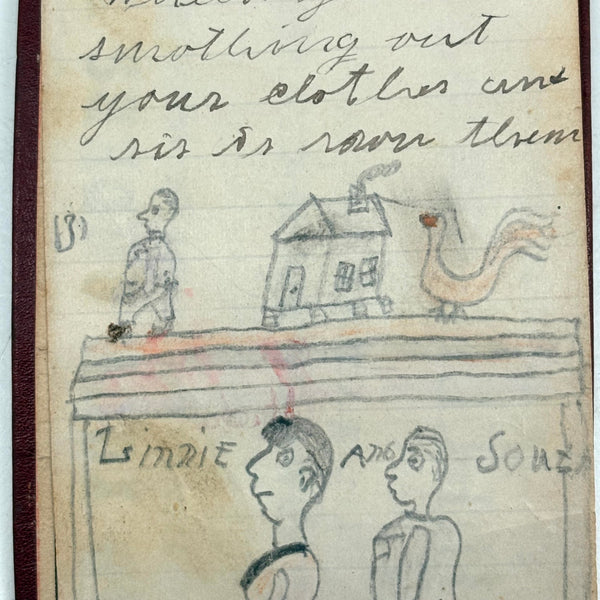 smothing out
your clothes and
sis is sown them
Linnie And